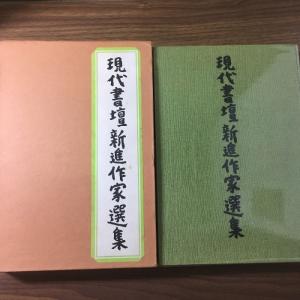 現代書壇新進作家選集
現代書壇新進作家選集